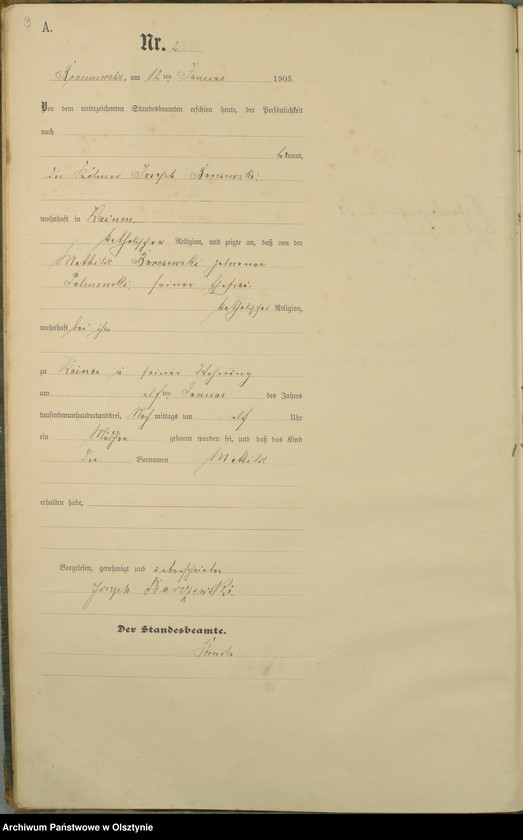 3
A.
Nr. 2
am 12ten Januar 1903.
Vor dem unterzeichneten Standesbeamten erschien heute, der Persönlichkeit
nach
bekannt,
der Kölmer Joseph Barczewski,
wohnhaft in
katholischer Religion, und zeigte an, daß von der
Mathilde Barczewski geborenen
Palmowski, seiner Ehefrau
katholischer Religion,
wohnhaft bei ihm
zu in seiner Wohnung
am elften Januar des Jahres
tausendneunhundertunddrei, Nachmittags um elf Uhr
ein Mädchen geboren worden sei, und daß das Kind
den Vornamen
erhalten habe.
Vorgelesen, genehmigt und unterschrieben
Joseph Barczewski.
Der Standesbeamte.
Archiwum Państwowe w Olsztynie